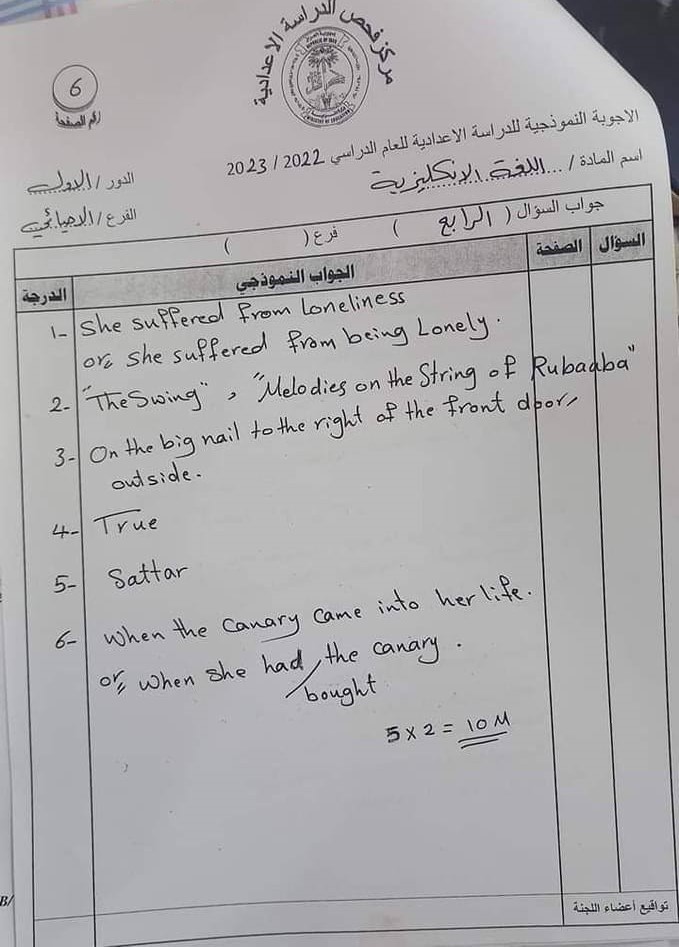 مركز فحص الدراسة الاعدادية
6
رقم الصفحة
الاجوبة النموذجية للدراسة الاعدادية للعام الدراسي 2022 / 2023
اسم المادة / ... اللغة الانكليزية
الدور / الاول
الفرع / الاحيائي
جواب السؤال ( الرابع ) فرع ( )
السؤال الصفحة الجواب النموذجي الدرجة
1- She suffered from Loneliness
or, she suffered from being Lonely.
2- "The Swing" , "Melodies on the String of Rubaaba"
3- On the big nail to the right of the front door,
outside.
4- True
5- Sattar
6- When the Canary Came into her life.
or, when she had / the canary.
bought
5 x 2 = 10 M
B/
تواقيع أعضاء اللجنة